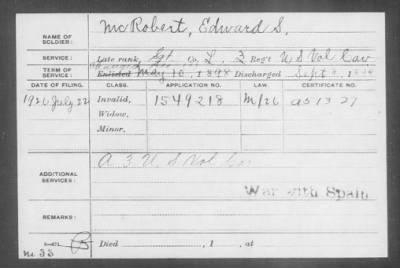 NAME OF SOLDIER: McRobert, Edward S.
SERVICE: Late rank, Sgt Co. L, 3 Reg't U S Vol Cav
TERM OF SERVICE: Enlisted May 10, 1898 Discharged Sept 8, 1898
DATE OF FILING. CLASS. APPLICATION NO. LAW. CERTIFICATE NO.
1926 July 22 Invalid, 1549218 M/26 a 5 13 27
Widow,
Minor,
ADDITIONAL SERVICES: A 3 U. S Vol Cav
War with Spain
REMARKS:
Died , 1 , at